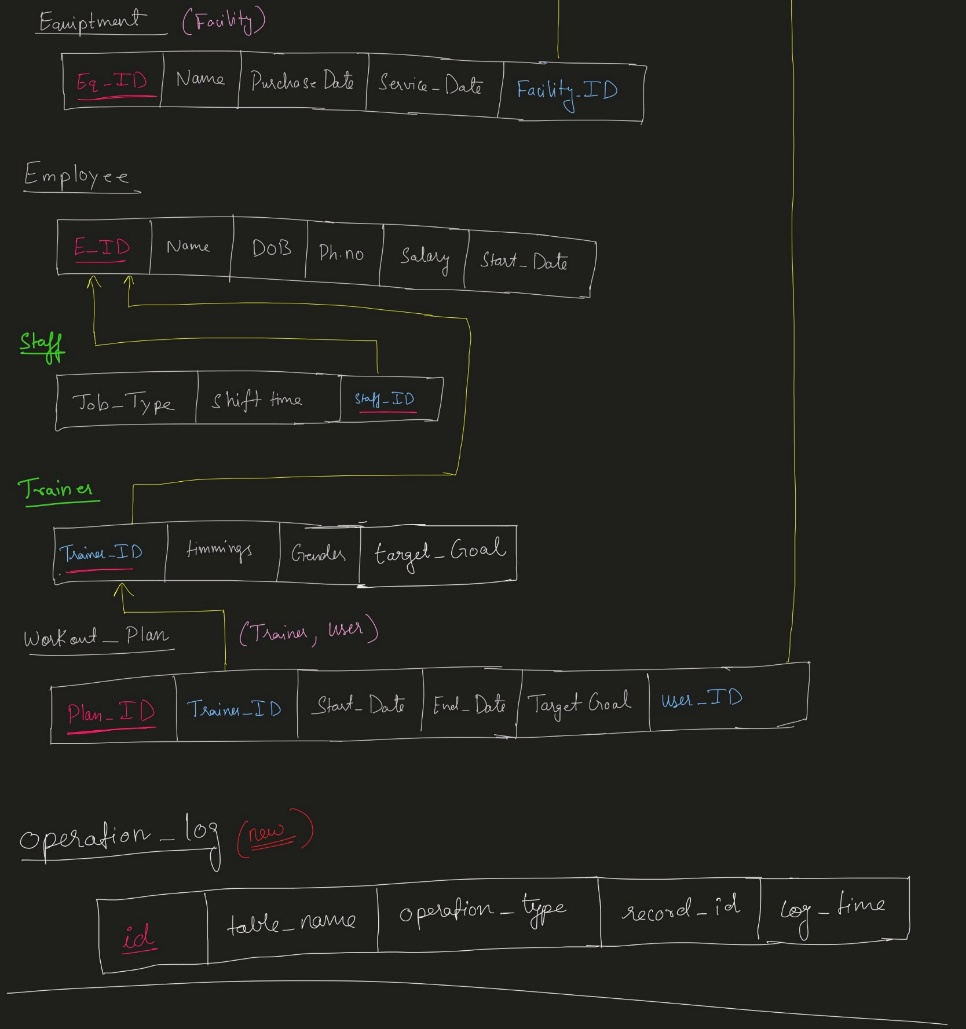 Equiptment (Facility)
Eq_ID Name Purchase Date Service_Date Facility_ID
Employee
E_ID Name DOB Ph.no Salary Start_Date
Staff
Job_Type Shift time Staff_ID
Trainer
Trainer_ID timmings Gender target_Goal
Workout_Plan (Trainer, User)
Plan_ID Trainer_ID Start_Date End_Date Target Goal user_ID
operation_log (new)
id table_name operation_type record_id log_time